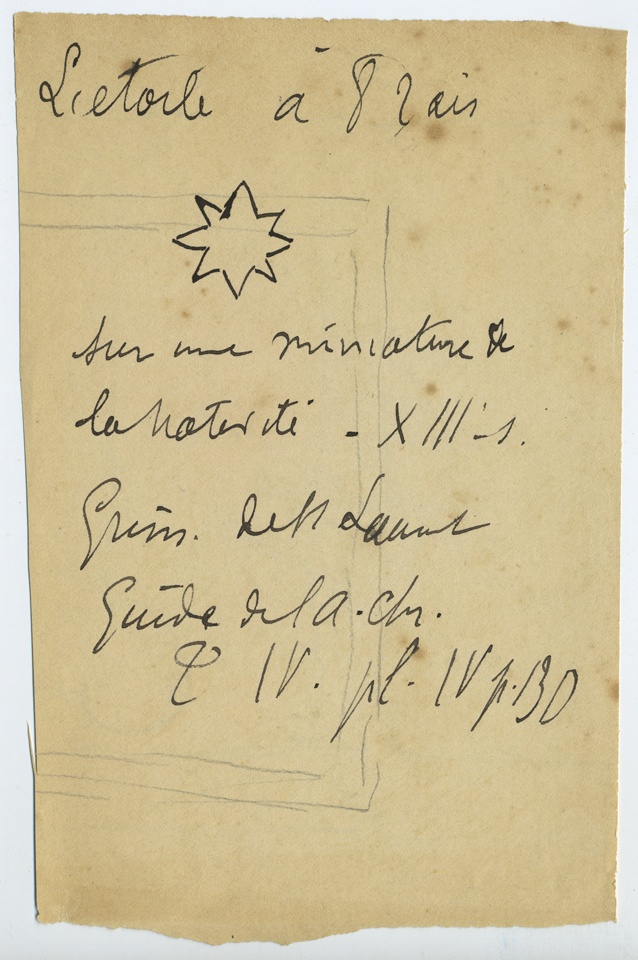 L'etoile à 8 rais
sur une miniature de
la Nativité - XIII's.
Grim. de St Laurent
Guide de l'A. chr.
T IV. pl. IV p. 130